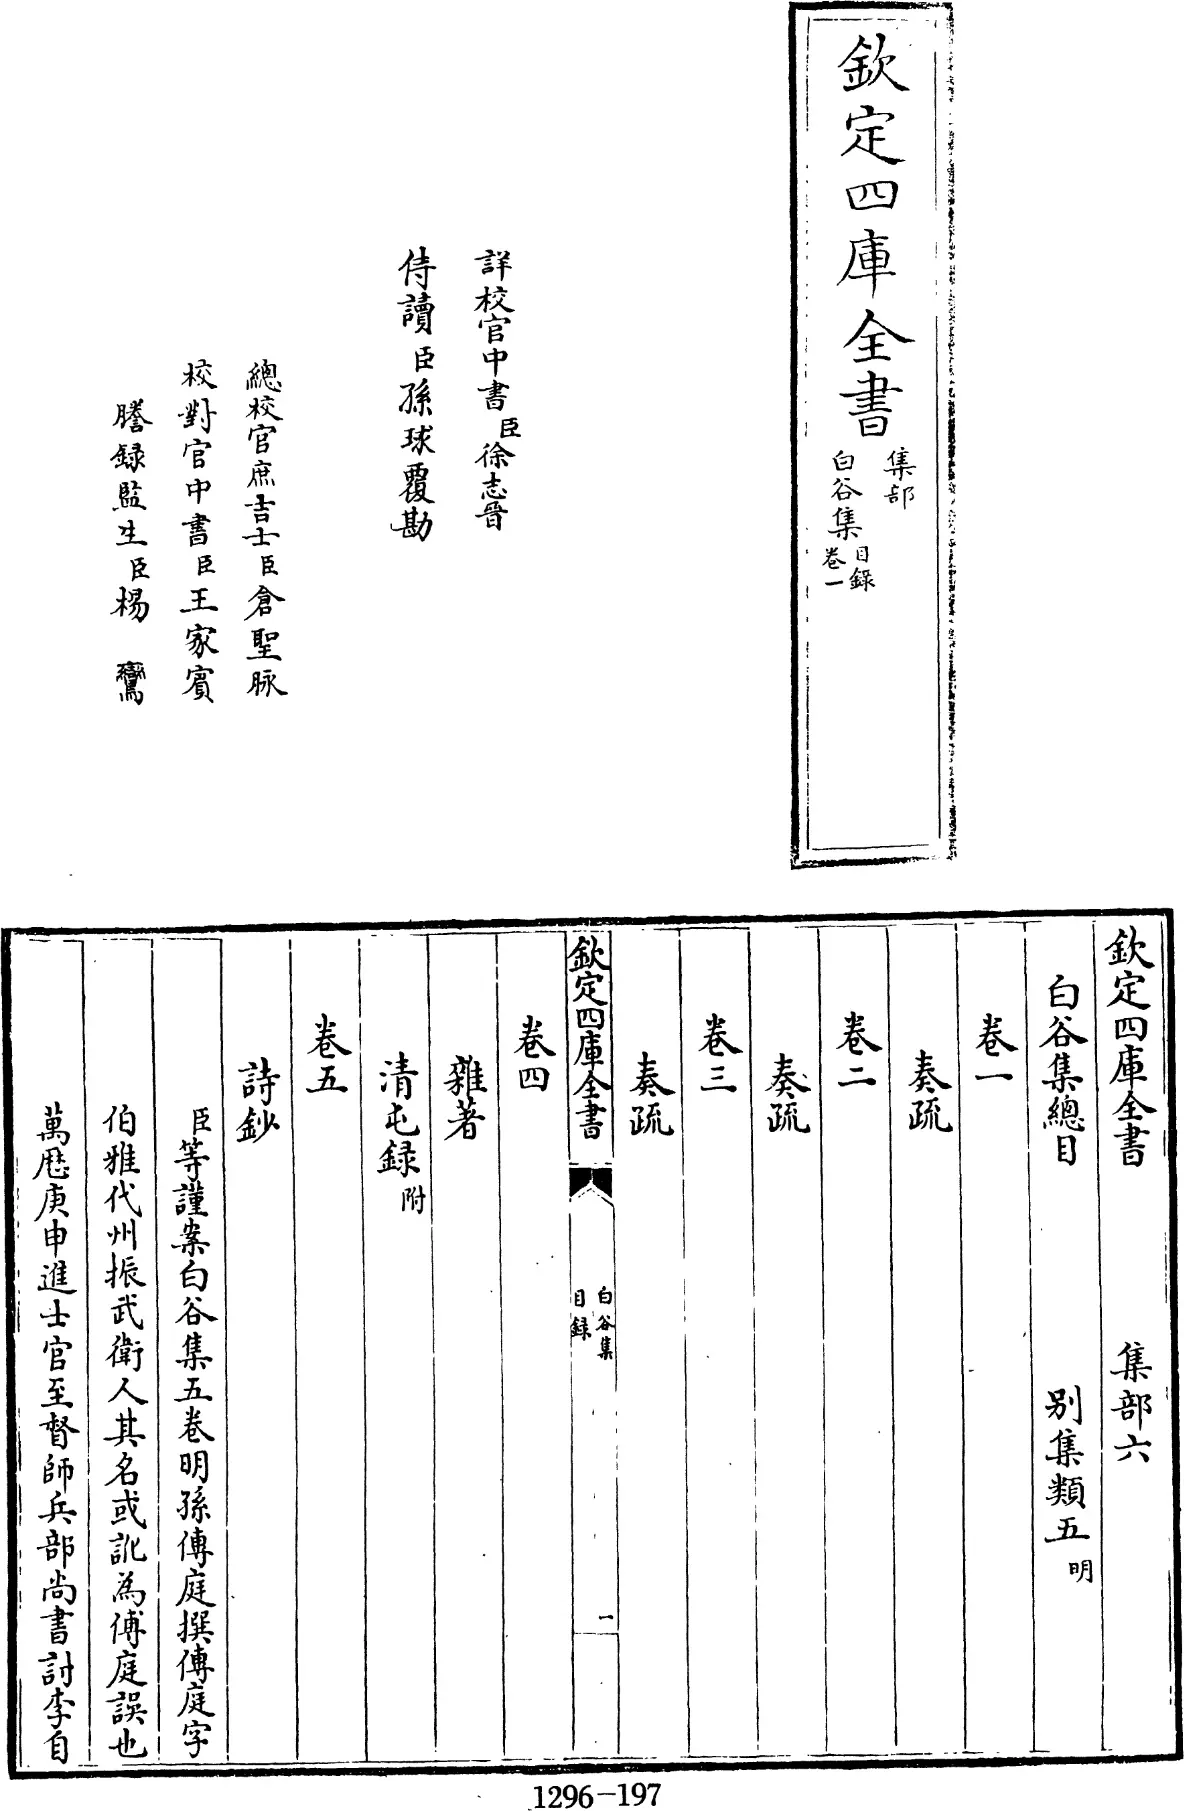 欽定四庫全書
集部
白谷集
目錄
卷一
詳校官中書臣徐志晉
侍讀臣孫球覆勘
總校官庶吉士臣倉聖脉
校對官中書臣王家賓
謄録監生臣楊鸞
欽定四庫全書 集部六
白谷集總目 别集類五明
卷一
奏疏
卷二
奏疏
卷三
奏疏
欽定四庫全書
白谷集
目録
一
卷四
雜著
清屯録附
卷五
詩鈔
臣等謹案白谷集五卷明孫傳庭撰傳庭字
伯雅代州振武衛人其名或訛為傅庭誤也
萬厯庚申進士官至督師兵部尚書討李自
1296-197